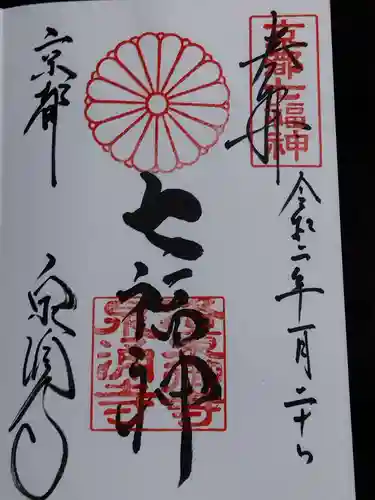 奉拝
京都七福神
令和二年一月二十日
七福神
京都
泉涌寺